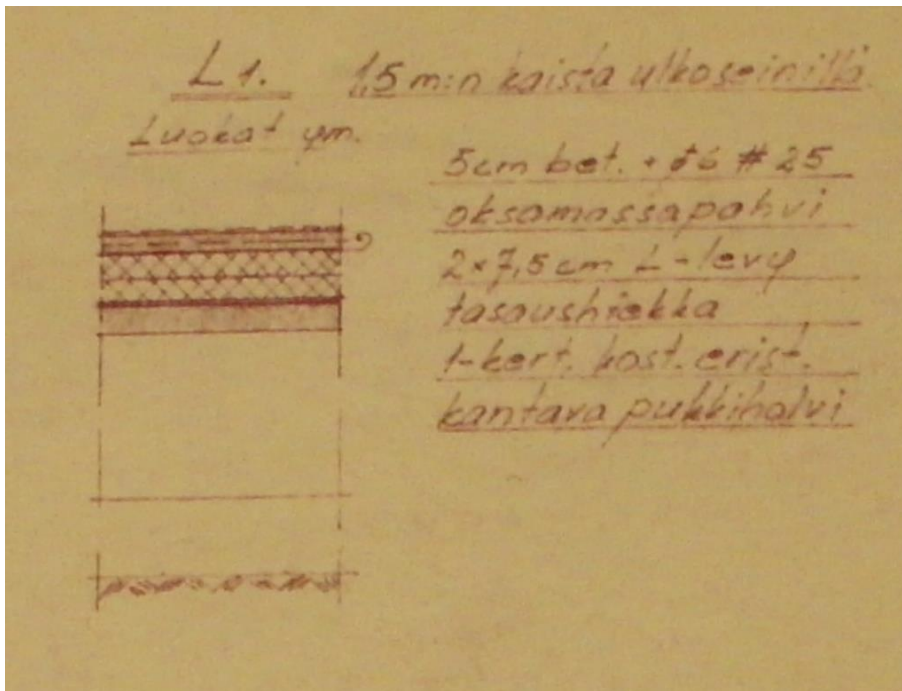 L 1. 1,5 m:n kaista ulkoseinillä.
Luokat ym.
5 cm bet. + ø6 # 25
oksamassapahvi
2×7,5 cm L-levy
tasaushiekka
1-kert. kost. erist.
kantava pukkiholvi